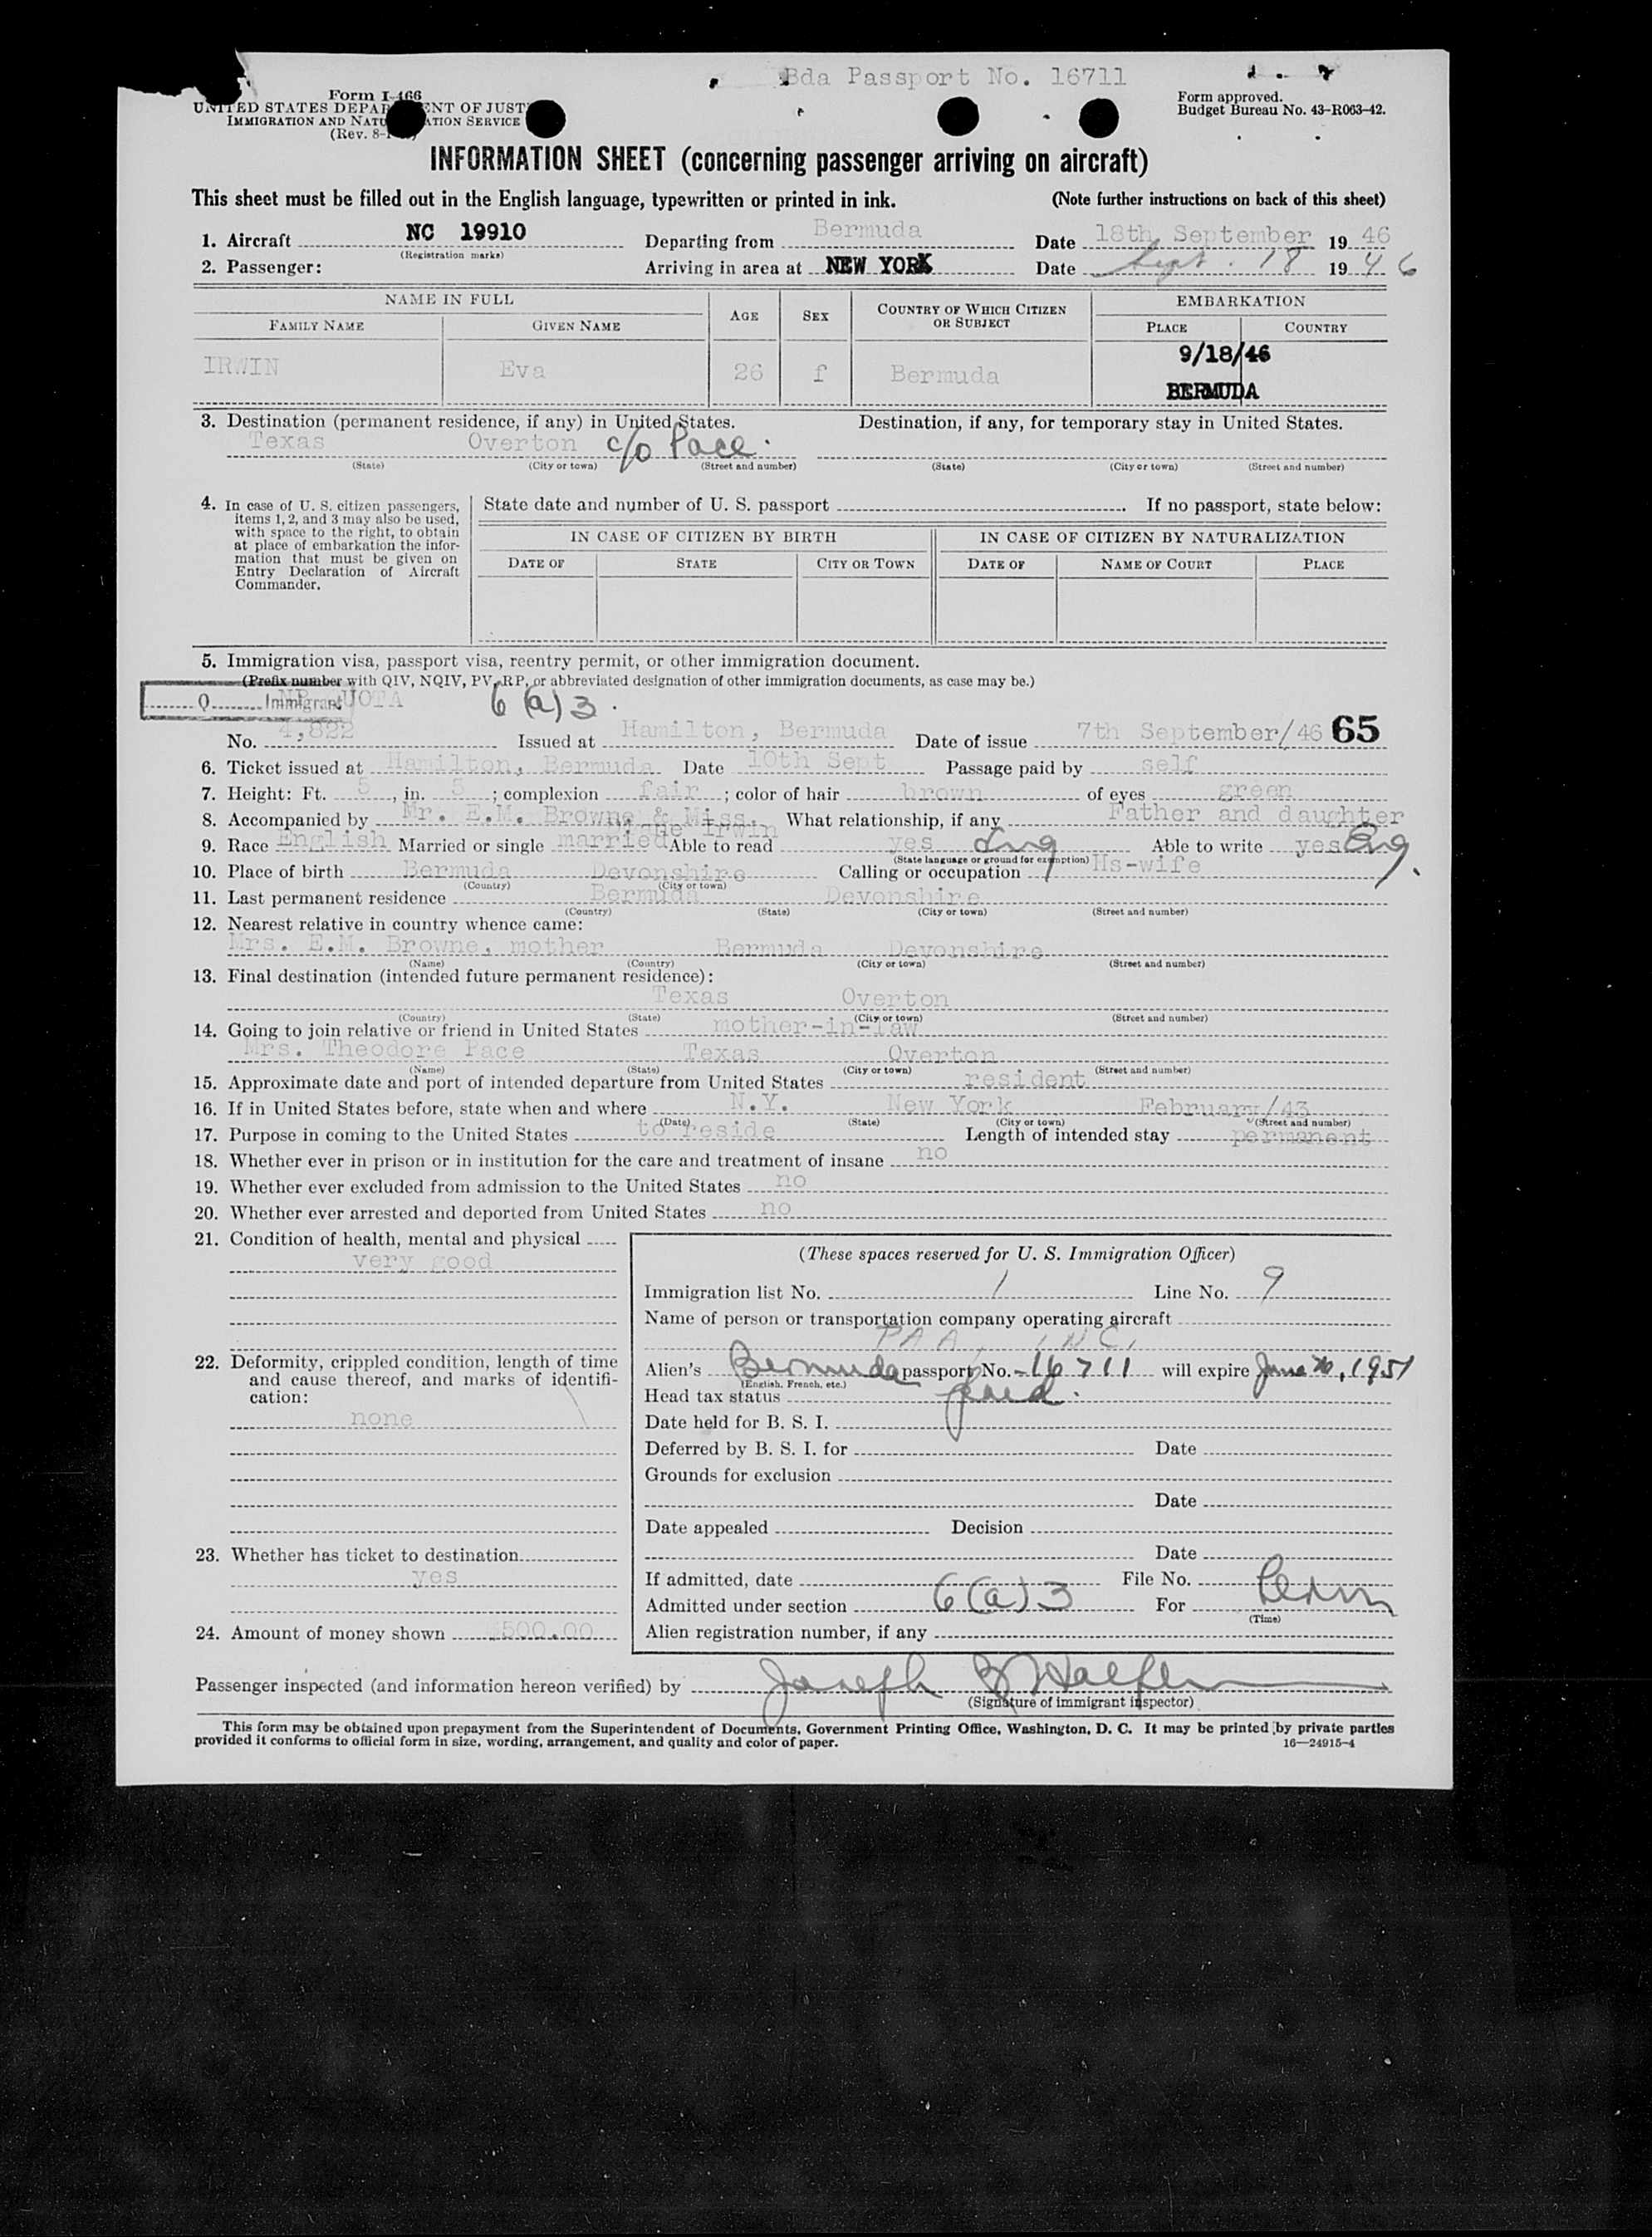 Bda Passport No. 16711
Form I-466
UNITED STATES DEPAR ENT OF JUST
IMMIGRATION AND NATU ATION SERVICE
(Rev. 8-
Form approved.
Budget Bureau No. 43-R063-42.
INFORMATION SHEET (concerning passenger arriving on aircraft)
This sheet must be filled out in the English language, typewritten or printed in ink. (Note further instructions on back of this sheet)
1. Aircraft NC 19910 Departing from Bermuda Date 18th September 19 46
(Registration marks)
2. Passenger: Arriving in area at NEW YORK Date Sept. 18 19 46
NAME IN FULL AGE SEX COUNTRY OF WHICH CITIZEN OR SUBJECT EMBARKATION
FAMILY NAME GIVEN NAME PLACE COUNTRY
9/18/46
IRWIN Eva 26 f Bermuda BERMUDA
3. Destination (permanent residence, if any) in United States. Destination, if any, for temporary stay in United States.
Texas Overton c/o Pace.
(State) (City or town) (Street and number) (State) (City or town) (Street and number)
4. In case of U. S. citizen passengers, items 1, 2, and 3 may also be used, with space to the right, to obtain at place of embarkation the information that must be given on Entry Declaration of Aircraft Commander.
State date and number of U. S. passport . If no passport, state below:
IN CASE OF CITIZEN BY BIRTH IN CASE OF CITIZEN BY NATURALIZATION
DATE OF STATE CITY OR TOWN DATE OF NAME OF COURT PLACE
5. Immigration visa, passport visa, reentry permit, or other immigration document.
(Prefix number with QIV, NQIV, PV, RP, or abbreviated designation of other immigration documents, as case may be.)
Q Immigrant UOTA 6 (a) 3.
No. 4,822 Issued at Hamilton, Bermuda Date of issue 7th September/46 65
6. Ticket issued at Hamilton, Bermuda Date 10th Sept Passage paid by self
7. Height: Ft. 5, in. 5; complexion fair; color of hair brown of eyes green
8. Accompanied by Mr. E.M. Browne & Miss. Irwin What relationship, if any Father and daughter
9. Race English Married or single married Able to read yes Eng Able to write yes Eng.
(State language or ground for exemption)
10. Place of birth Bermuda Devonshire Calling or occupation Hs-wife
(Country) (City or town)
11. Last permanent residence Bermuda Devonshire
(Country) (State) (City or town) (Street and number)
12. Nearest relative in country whence came:
Mrs. E.M. Browne, mother Bermuda Devonshire
(Name) (Country) (City or town) (Street and number)
13. Final destination (intended future permanent residence):
Texas Overton
(Country) (State) (City or town) (Street and number)
14. Going to join relative or friend in United States mother-in-law
Mrs. Theodore Pace Texas Overton
(Name) (State) (City or town) (Street and number)
15. Approximate date and port of intended departure from United States resident
16. If in United States before, state when and where N.Y. New York February/43
(Date) (State) (City or town) (Street and number)
17. Purpose in coming to the United States to reside Length of intended stay permanent
18. Whether ever in prison or in institution for the care and treatment of insane no
19. Whether ever excluded from admission to the United States no
20. Whether ever arrested and deported from United States no
21. Condition of health, mental and physical
very good
22. Deformity, crippled condition, length of time and cause thereof, and marks of identification:
none
23. Whether has ticket to destination
yes
24. Amount of money shown 500.00
(These spaces reserved for U. S. Immigration Officer)
Immigration list No. 1 Line No. 9
Name of person or transportation company operating aircraft
PAA, INC,
Alien's Bermuda passport No. 16711 will expire June 20, 1951
(English, French, etc.)
Head tax status paid.
Date held for B. S. I.
Deferred by B. S. I. for Date
Grounds for exclusion
Date
Date appealed Decision
Date
If admitted, date File No.
Admitted under section 6(a)3 For Perm
(Time)
Alien registration number, if any
Passenger inspected (and information hereon verified) by Joseph
(Signature of immigrant inspector)
This form may be obtained upon prepayment from the Superintendent of Documents, Government Printing Office, Washington, D. C. It may be printed by private parties
provided it conforms to official form in size, wording, arrangement, and quality and color of paper. 16—24915-4